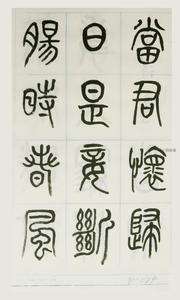 當君懷歸
日是妾斷
腸時春風